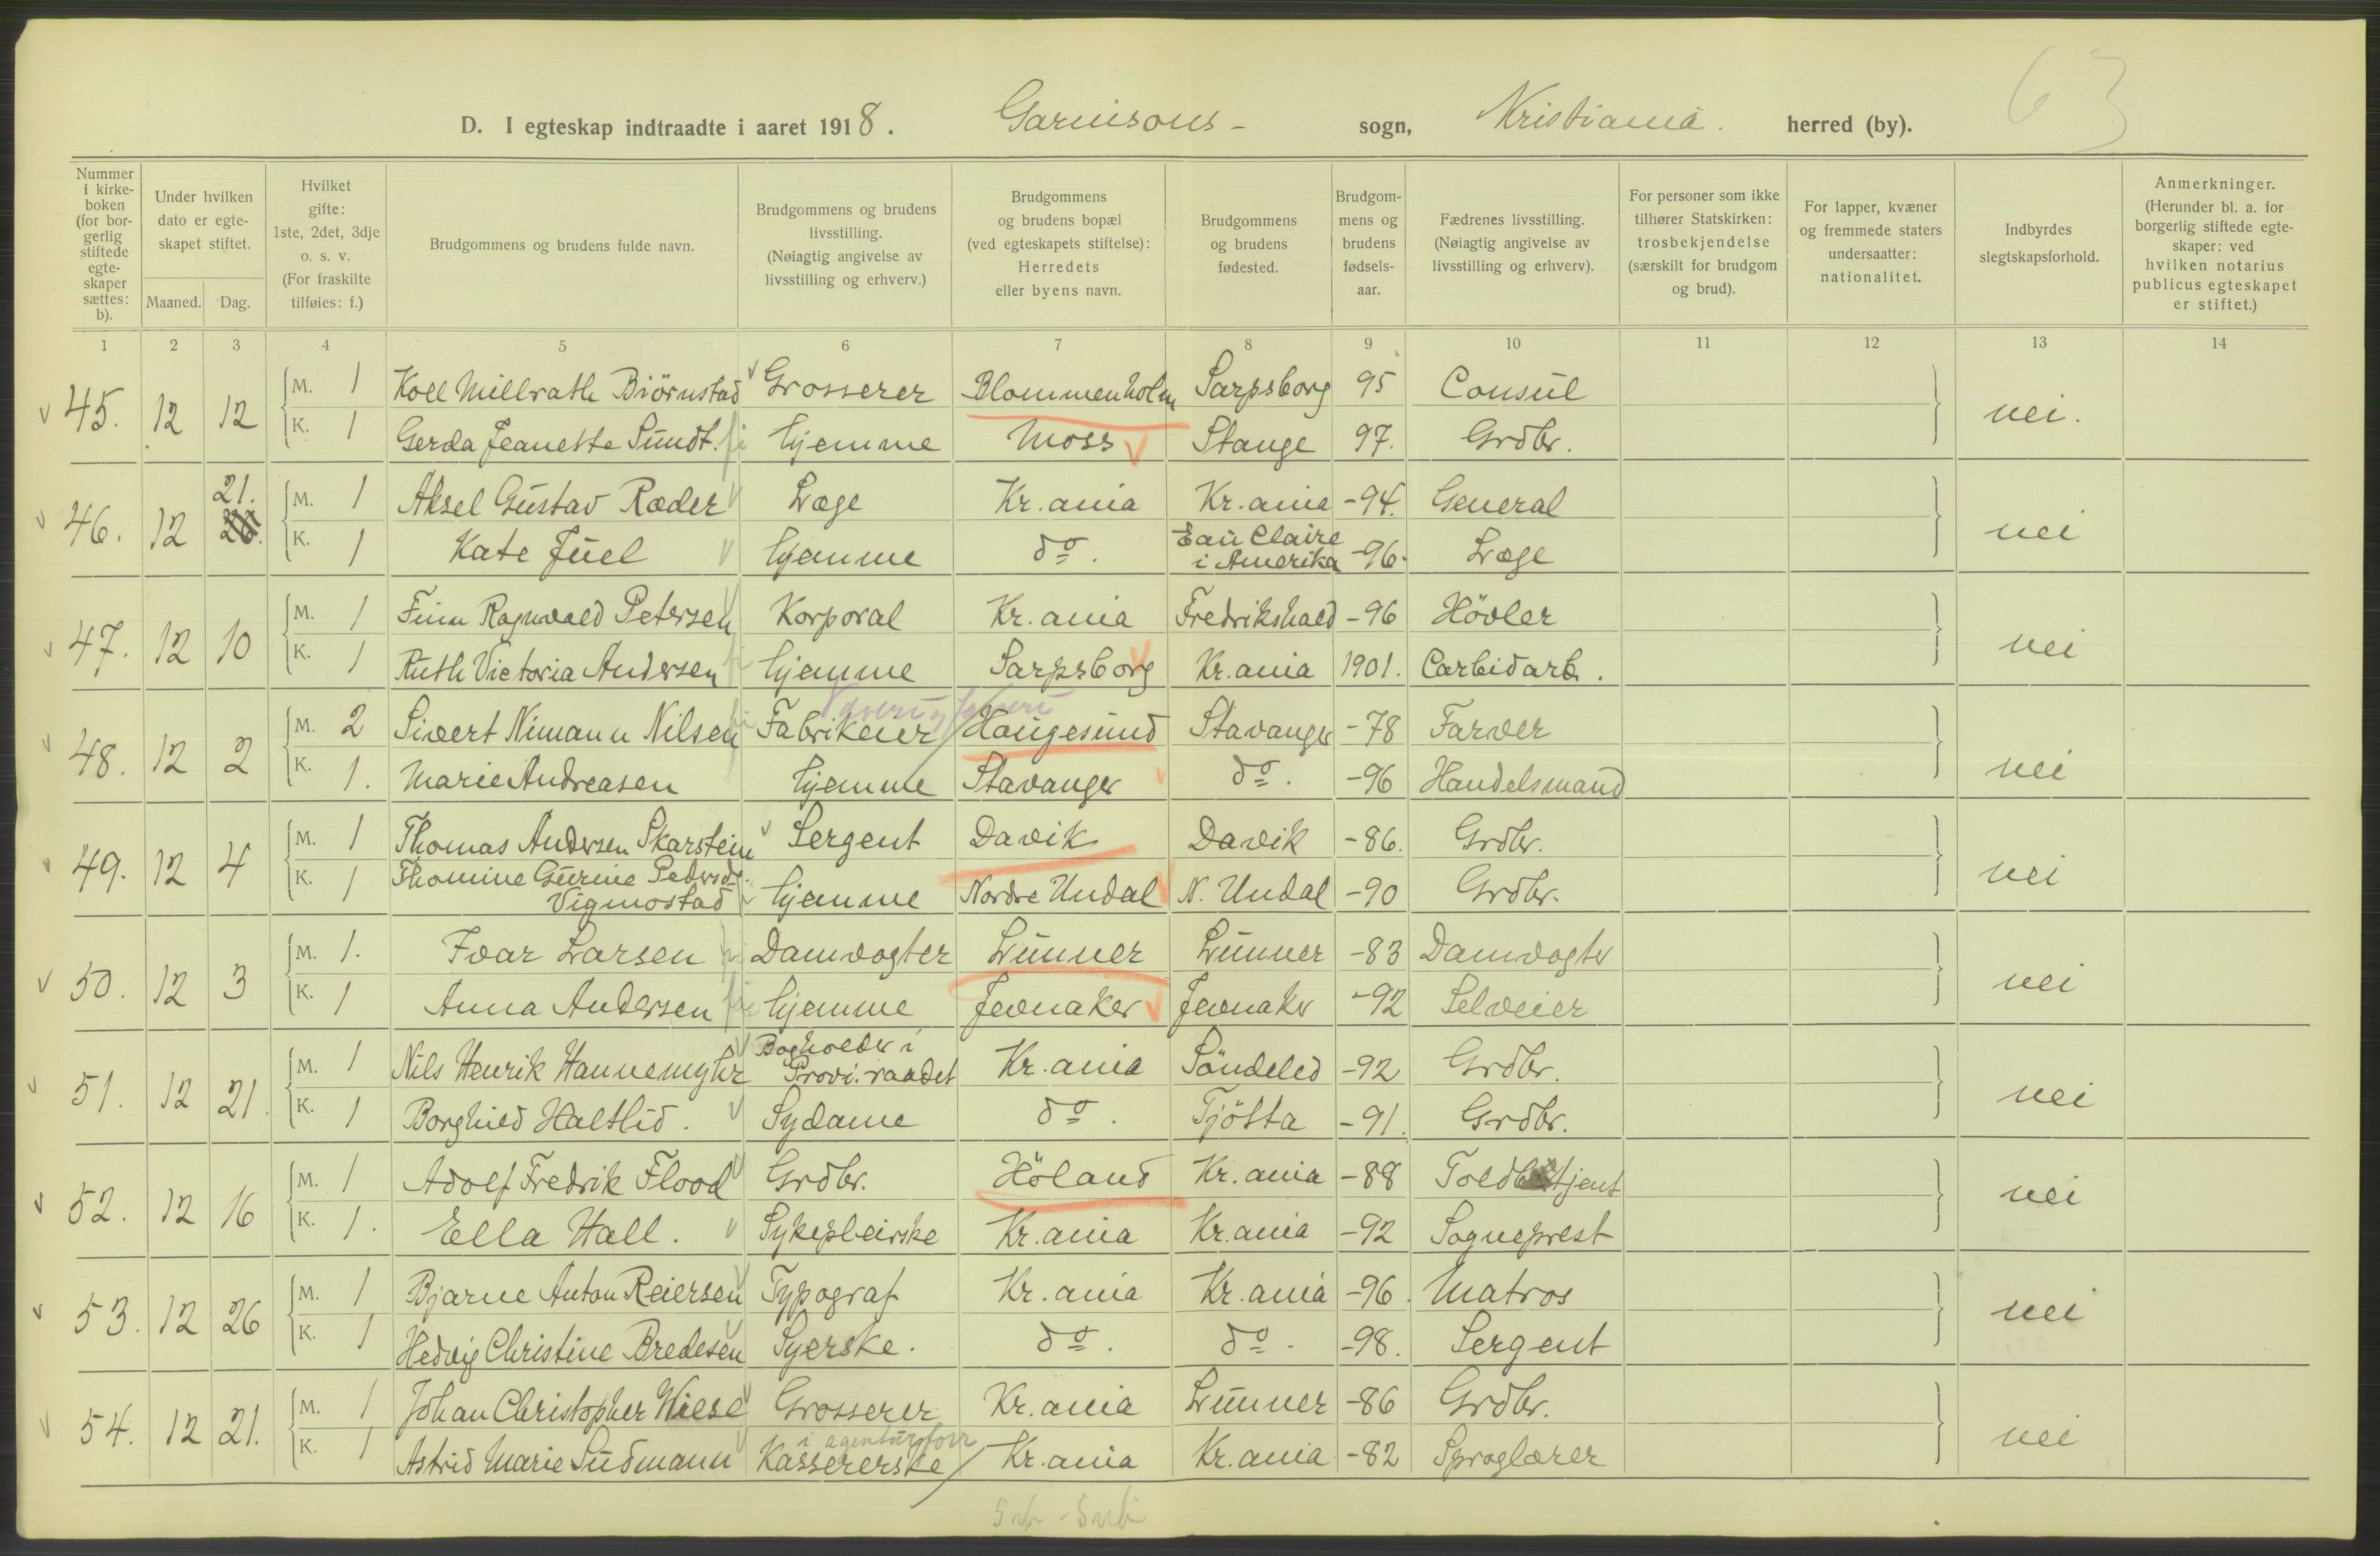 63
D. I egteskap indtraadte i aaret 1918. Garnisons- sogn, Kristiania. herred (by).
Nummer i kirke-boken (for bor-gerlig stiftede egte-skaper sættes: b).
Under hvilken dato er egte-skapet stiftet.
Maaned. Dag.
Hvilket gifte: 1ste, 2det, 3dje o. s. v. (For fraskilte tilføies: f.)
Brudgommens og brudens fulde navn.
Brudgommens og brudens livsstilling. (Nøiagtig angivelse av livsstilling og erhverv.)
Brudgommens og brudens bopæl (ved egteskapets stiftelse): Herredets eller byens navn.
Brudgommens og brudens fødested.
Brudgom-mens og brudens fødsels-aar.
Fædrenes livsstilling. (Nøiagtig angivelse av livsstilling og erhverv).
For personer som ikke tilhører Statskirken: trosbekjendelse (særskilt for brudgom og brud).
For lapper, kvæner og fremmede staters undersaatter: nationalitet.
Indbyrdes slegtskapsforhold.
Anmerkninger. (Herunder bl. a. for borgerlig stiftede egte-skaper: ved hvilken notarius publicus egteskapet er stiftet.)
1 2 3 4 5 6 7 8 9 10 11 12 13 14
45. 12 12 M. 1 Koll Millrath Biörnstad Grosserer Blommenholm Sarpsborg 95 Consul nei.
K. 1 Gerda Jeanette Sundt. hjemme Moss Stange 97. Grdbr.
46. 12 21. M. 1 Aksel Gustav Ræder Læge Kr.ania Kr.ania -94. General nei
K. 1 Kate Juel hjemme do. Eau Claire i Amerika -96. Læge
47. 12 10 M. 1 Finn Ragnvald Petersen Korporal Kr.ania Fredrikshald -96 Hövler nei
K. 1 Ruth Victoria Andersen hjemme Sarpsborg Kr.ania 1901. Carbidarb.
48. 12 2 M. 2 Sivert Nimann Nilsen Fabrikeier Haugesund Stavanger -78 Farver nei
K. 1. Marie Andreasen hjemme Stavanger do. -96 Handelsmand
49. 12 4 M. 1 Thomas Andersen Skarstein Sergent Davik Davik -86. Grdbr. nei
K. 1 Thomine Gurine Pedersd. Vigmostad hjemme Nordre Undal N. Undal -90 Grdbr.
50. 12 3 M. 1. Ivar Larsen Damvogter Lunner Lunner -83 Damvogter nei
K. 1 Anna Andersen hjemme Jevnaker Jevnaker -92 Selveier
51. 12 21. M. 1 Nils Henrik Hannemyhr Bogholder i Provi.raadet Kr.ania Söndeled -92 Grdbr. nei
K. 1 Borghild Haltlid. Sydame do. Tjötta -91. Grdbr.
52. 12 16 M. 1 Adolf Fredrik Flood Grdbr. Höland Kr.ania -88 Toldbetjent nei
K. 1. Ella Hall. Sykepleirske Kr.ania Kr.ania -92 Sogneprest
53. 12 26 M. 1 Bjarne Anton Reiersen Typograf Kr.ania Kr.ania -96. Matros nei
K. 1 Hedvig Christine Bredesen Syerske. do. do. -98. Sergent
54. 12 21. M. 1 Johan Christopher Wiese Grosserer Kr.ania Lunner -86 Grdbr. nei
K. 1 Astrid Marie Sudmann Kassererske i agenturforr Kr.ania Kr.ania -82 Sproglærer